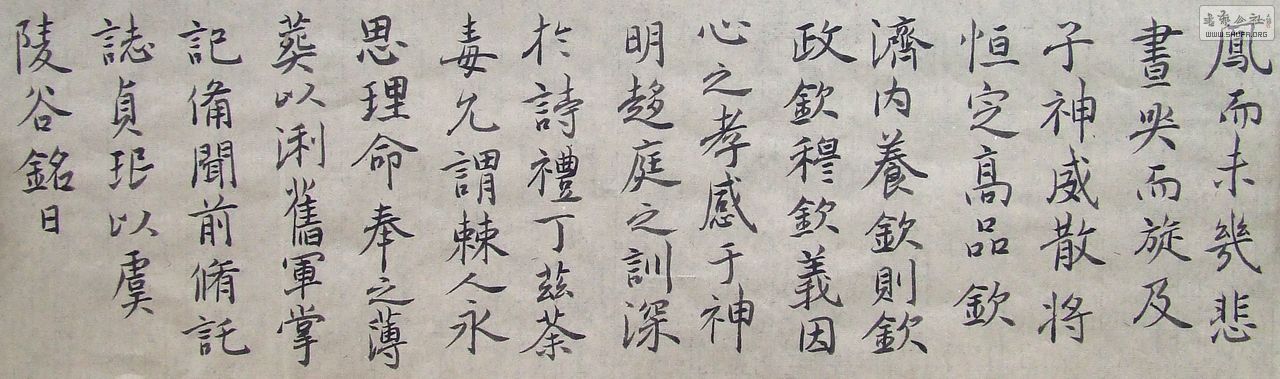 鳳而未幾悲
晝哭而旋及
子神威散將
恒定高品欽
濟内養欽則欽
政欽穆欽義因
心之孝感于神
明趍庭之訓深
於詩禮丁茲荼
毒允謂棘人永
思理命奉之薄
葬以浰舊軍掌
記備聞前脩託
誌貞珉以虞
陵谷銘曰
WWW.SHUFA.ORG